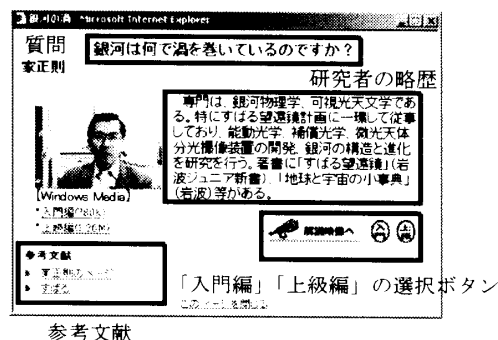 Microsoft Internet Explorer
質問
銀河は何で渦を巻いているのですか?
家正則
研究者の略歴
専門は、銀河物理学、可視光天文学であ
る。特にすばる望遠鏡計画に一環して従事
しており、能動光学、補償光学、微光天体
分光撮像装置の開発、銀河の構造と進化
を研究を行う。著書に「すばる望遠鏡」(岩
波ジュニア新書)、「地球と宇宙の小事典」
(岩波)等がある。
【Windows Media】
入門編
上級編
解説映像へ
入門
上級
参考文献
すばる
「入門編」「上級編」の選択ボタン
このページを閉じる
参考文献